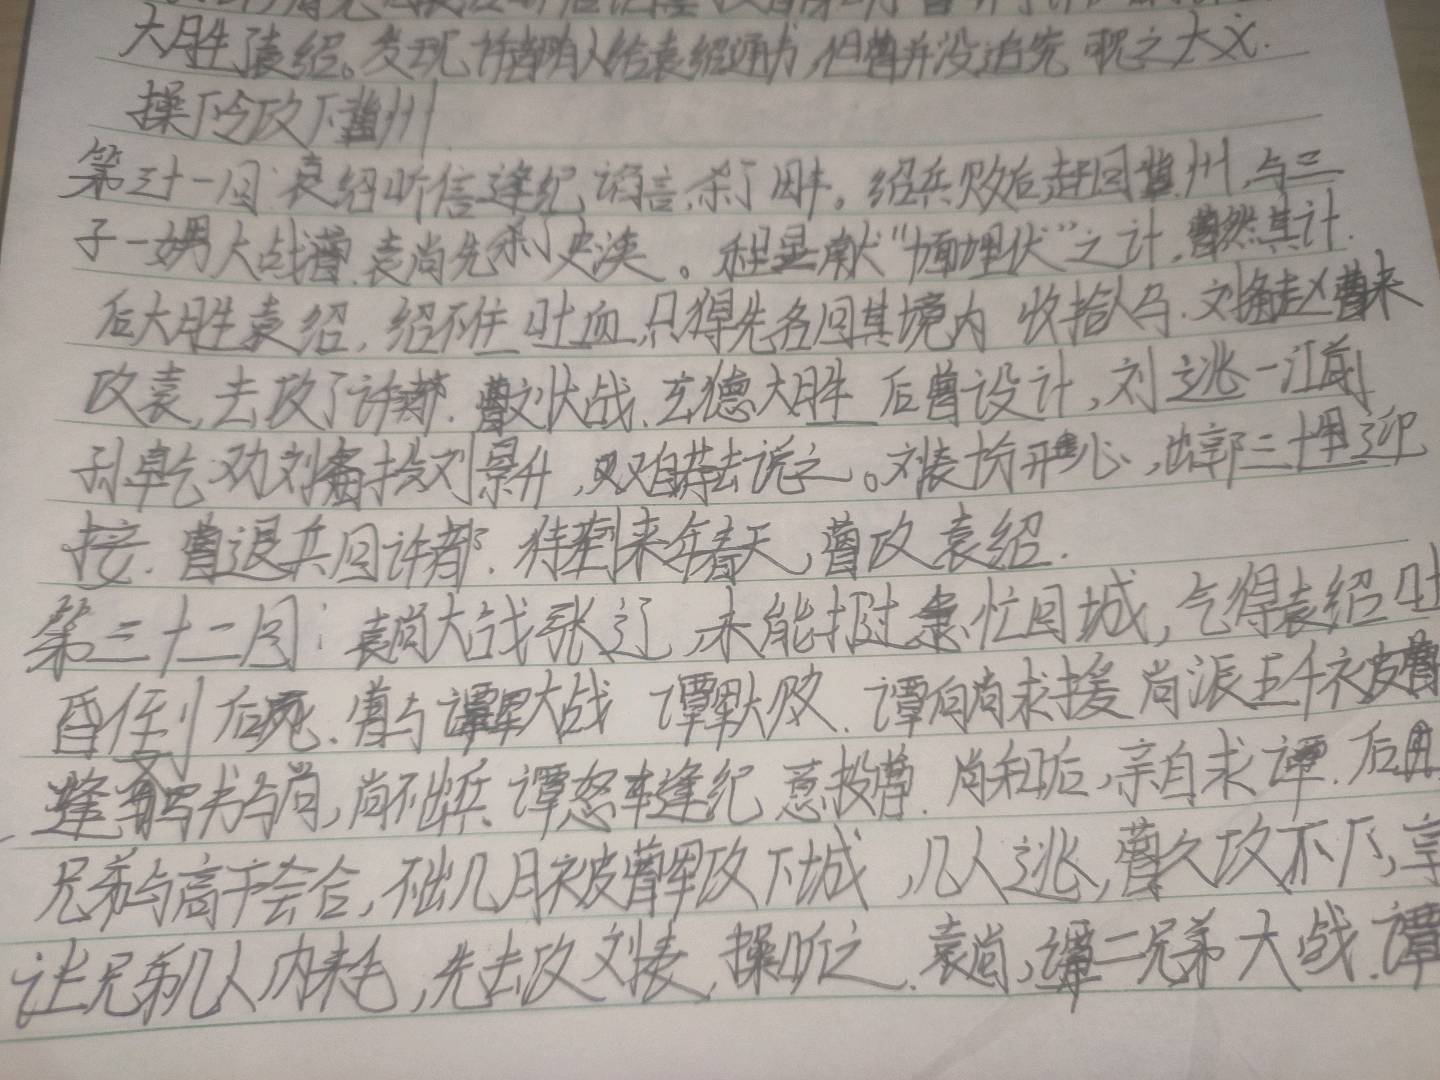 大胜了袁绍。发现许都有人给袁绍通书,但曹并没追究 视之大义.
操下令攻下冀州
第三十一回:袁绍听信逢纪谄言,杀了田丰。绍兵败后赶回冀州,与三
子一甥大战曹.袁尚先杀史涣。程昱献“十面埋伏”之计,曹然其计.
后大胜袁绍,绍不住吐血,只得先各回其境内 收拾人马.刘备趁曹来
攻袁,去攻了许都.曹刘大战,玄德大胜 后曹设计,刘逃一江前
孙乾劝刘备投刘景升,又自荐去说之。刘表十分开心,出郭三十里迎
接.曹退兵回许都.待到来年春天,曹攻袁绍.
第三十二回:袁尚大战张辽,未能挡急忙回城,气得袁绍吐
昏倒后死.曹与谭军大战 谭军大败.谭向尚求援 尚派五千被曹
逢写书与尚,尚不出兵 谭怒 逢纪 意投曹.尚知后,亲自求谭.后
兄弟与高干会合,不出几月被曹军攻下城,几人逃,曹久攻不下,享
让兄弟几人内耗,先去攻刘表,操听之.袁尚,谭二兄弟大战.谭